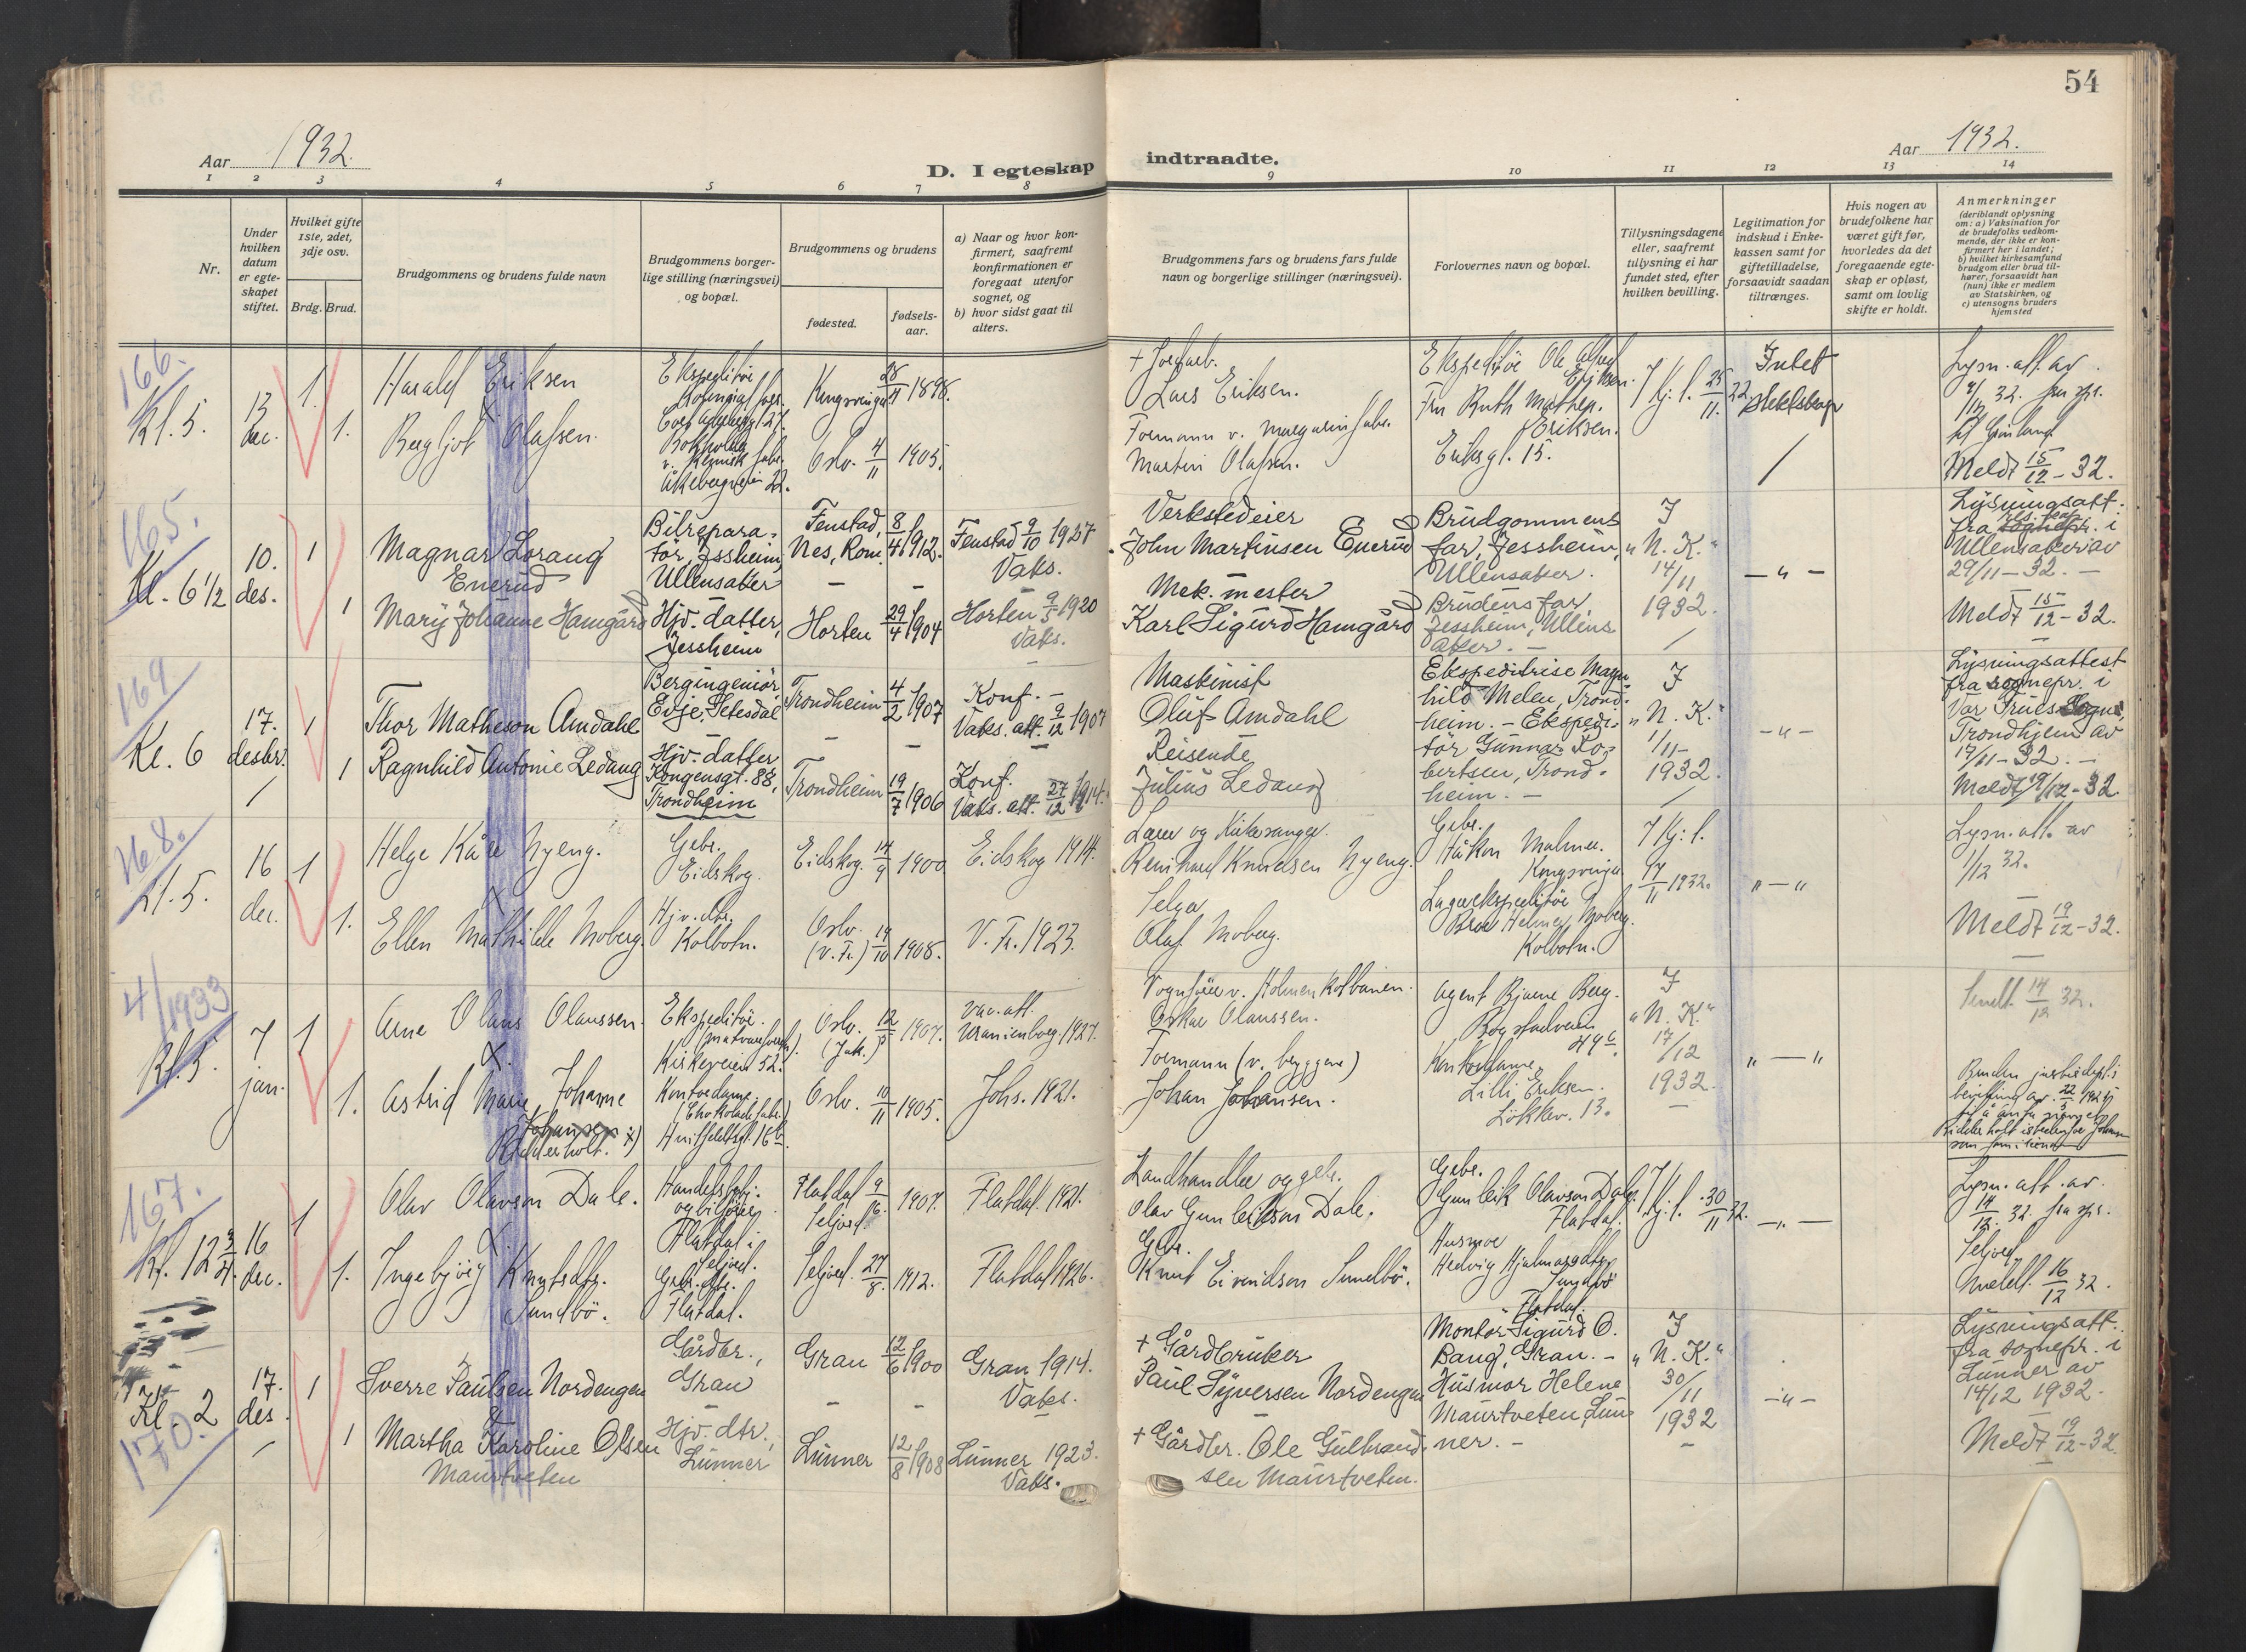 54
Aar 1932.
D. I egteskap
indtraadte.
Aar 1932.
1 2 3 4 5 6 7 8 9 10 11 12 13 14
Nr.
Under hvilken datum er egte-skapet stiftet.
Hvilket gifte 1ste, 2det, 3dje osv.
Brdg. Brud.
Brudgommens og brudens fulde navn
Brudgommens borger-lige stilling (næringsvei) og bopæl.
Brudgommens og brudens
fødested.
fødsels-aar.
a) Naar og hvor kon-firmert, saafremt konfirmationen er foregaat utenfor sognet, og
b) hvor sidst gaat til alters.
Brudgommens fars og brudens fars fulde navn og borgerlige stillinger (næringsvei).
Forlovernes navn og bopæl.
Tillysningsdagene eller, saafremt tillysning ei har fundet sted, efter hvilken bevilling.
Legitimation for indskud i Enke-kassen samt for giftetilladelse, forsaavidt saadan tiltrænges.
Hvis nogen av brudefolkene har været gift før, hvorledes da det foregaaende egte-skap er opløst, samt om lovlig skifte er holdt.
Anmerkninger
(deriblandt oplysning om: a) Vaksination for de brudefolks vedkom-mende, der ikke er kon-firmert her i landet; b) hvilket kirkesamfund brudgom eller brud til-hører, forsaavidt han (hun) ikke er medlem av Statskirken, og c) utensogns bruders hjemsted
166.
Kl. 5.
13 dec.
1.
Harald Eriksen
Ekspeditør
Kongsvinger 28/11 1898.
Lars Eriksen.
Ekspeditør Ole Alfred Eriksen.
7 Kj: l. 25/11.
Intet slektskap
Lysn. att. av
1.
Bergljot Olafsen.
Oslo. 4/11 1905.
Formann v. margarinfabr.
Martin Olafsen.
Fru Ruth Eriksen.
Eriksgt. 15.
Meldt 15/12 - 32.
165.
Kl. 6 1/2
10. des.
1
Magnar Lorang Enerud
Bilrepara-tør, Jessheim, Ullensaker
Fenstad, Nes, Rom. 8/4 1912.
Fenstad 9/10 1927
Vaks.
Verkstedeier
John Martinsen Enerud
Brudgommens far, Jessheim, Ullensaker.
I "N. K." 14/11 1932.
- " -
Lysningsatt. fra sognepr. i Ullensaker av 29/11 - 32. -
1
Mary Johanne Hamgård
Hjv. datter, Jessheim
Horten 29/4 1904
Horten 9/5 1920
Vaks.
Mek. mester
Karl Sigurd Hamgård
Brudens far, Jessheim, Ullens aker. -
Meldt 15/12 - 32.
169
Kl. 6
17. desbr.
1
Thor Matheson Amdahl
Bergingeniør, Evje, Setesdal
Trondheim 4/2 1907
Konf. -
Vaks. att. 9/12 1907
Maskinist
Oluf Amdahl
Ekspeditrise Magn-hild Melen, Trond-heim. - Ekspedi-tør Gunnar Ro-bertsen, Trond-heim. -
I "N. K." 1/11 1932.
- " -
Lysningsattest fra sognepr. i Vår Frues Sogn, Trondhjem av 17/11 - 32. -
1
Ragnhild Antonie Ledang
Hjv. datter Kongensgt. 88, Trondheim
Trondheim 19/7 1906
Konf.
Vaks. att. 27/12 1914.
Reisende
Julius Ledang
Meldt 19/12 - 32.
168.
Kl. 5.
16 dec.
1
Helge Kåre Nyeng.
Gbr. Eidskog.
Eidskog. 14/9 1900
Eidskog 1914.
Lærer og Kirkesanger.
Reinhard Knudsen Nyeng.
Gbr. Håkon Malmer Kongsvinger
7 Kj: l. 1932.
" - "
Lysn. att. av 1/12 32.
1.
Ellen Mathilde Moberg
Hjv. dtr. Kolbotn.
Oslo. (V. Fr.) 19/10 1908.
V. Fr. 1923.
Selger
Olaf Moberg.
Lagerekspeditør Helmer Moberg. Kolbotn.
Meldt 19/12 - 32.
4/1933
Kl. 5.
7 jan.
1
Arne Olaus Olaussen.
Ekspeditør. Kirkeveien 52.
Oslo. (Jak.) 1907.
Vac. att. Uranienborg 1927.
Vognfører v. Holmenkolbanen.
Oskar Olaussen.
Agent Bjarne Berg. Bogstadveien 49 c.
I "N. K." 17/12 1932.
" - "
14/12 32.
1.
Astrid Marie Johanne Johansen x) Ridderholt.
Kontordame (Chokoladefabr.) Huitfeldtsgt. 16 b.
Oslo. 10/11 1905.
Johs. 1921.
Formann (v. bryggeri)
Johan Johansen.
Kontordame Lilli Eriksen. Løkkev. 13.
Bruden justisdept.s bevilling av
167.
Kl. 12 3/4.
16 dec.
1
Olav Olavson Dale.
Flatdal i Seljord.
Flatdal Seljord. 9/6. 1907.
Flatdal. 1921.
Landhandler og gbr.
Olav Gunleikson Dale.
Gbr. Gunleik Olavson Dale, Flatdal.
7 Kj: l. 30/11 32.
- " -
Lysn. att. av. 14/12. 32. fra spr. Seljord
1.
Ingebjørg Knutsdtr. Sundbö.
Gbr. dtr. Flatdal.
Seljord. 27/8. 1912.
Flatdal 1926.
Gbr.
Knut Eivindson Sundbö.
Husmor Hedvig Hjalmarsdtr Sundbö Flatdal.
Meldt. 16/12 32.
Kl. 2
170.
17. des.
1
Sverre Paulsen Nordengen
Gårdbr., Gran
Gran 12/6 1900
Gran 1914.
Vaks.
+ Gårdbruker
Paul Syversen Nordengen
Montør Sigurd O. Bang, Gran. -
Husmor Helene Maurtveten, Lun-ner. -
I "N. K." 30/11 1932
- " -
Lysningsatt. fra sognepr. i Lunner av 14/12 1932.
1
Martha Karoline Olsen Maurtveten
Hjv. dtr., Lunner
Lunner 12/8 1908
Lunner 1923.
Vaks.
+ Gårdbr. Ole Gulbrand-sen Maurtveten.
Meldt 19/12 - 32.